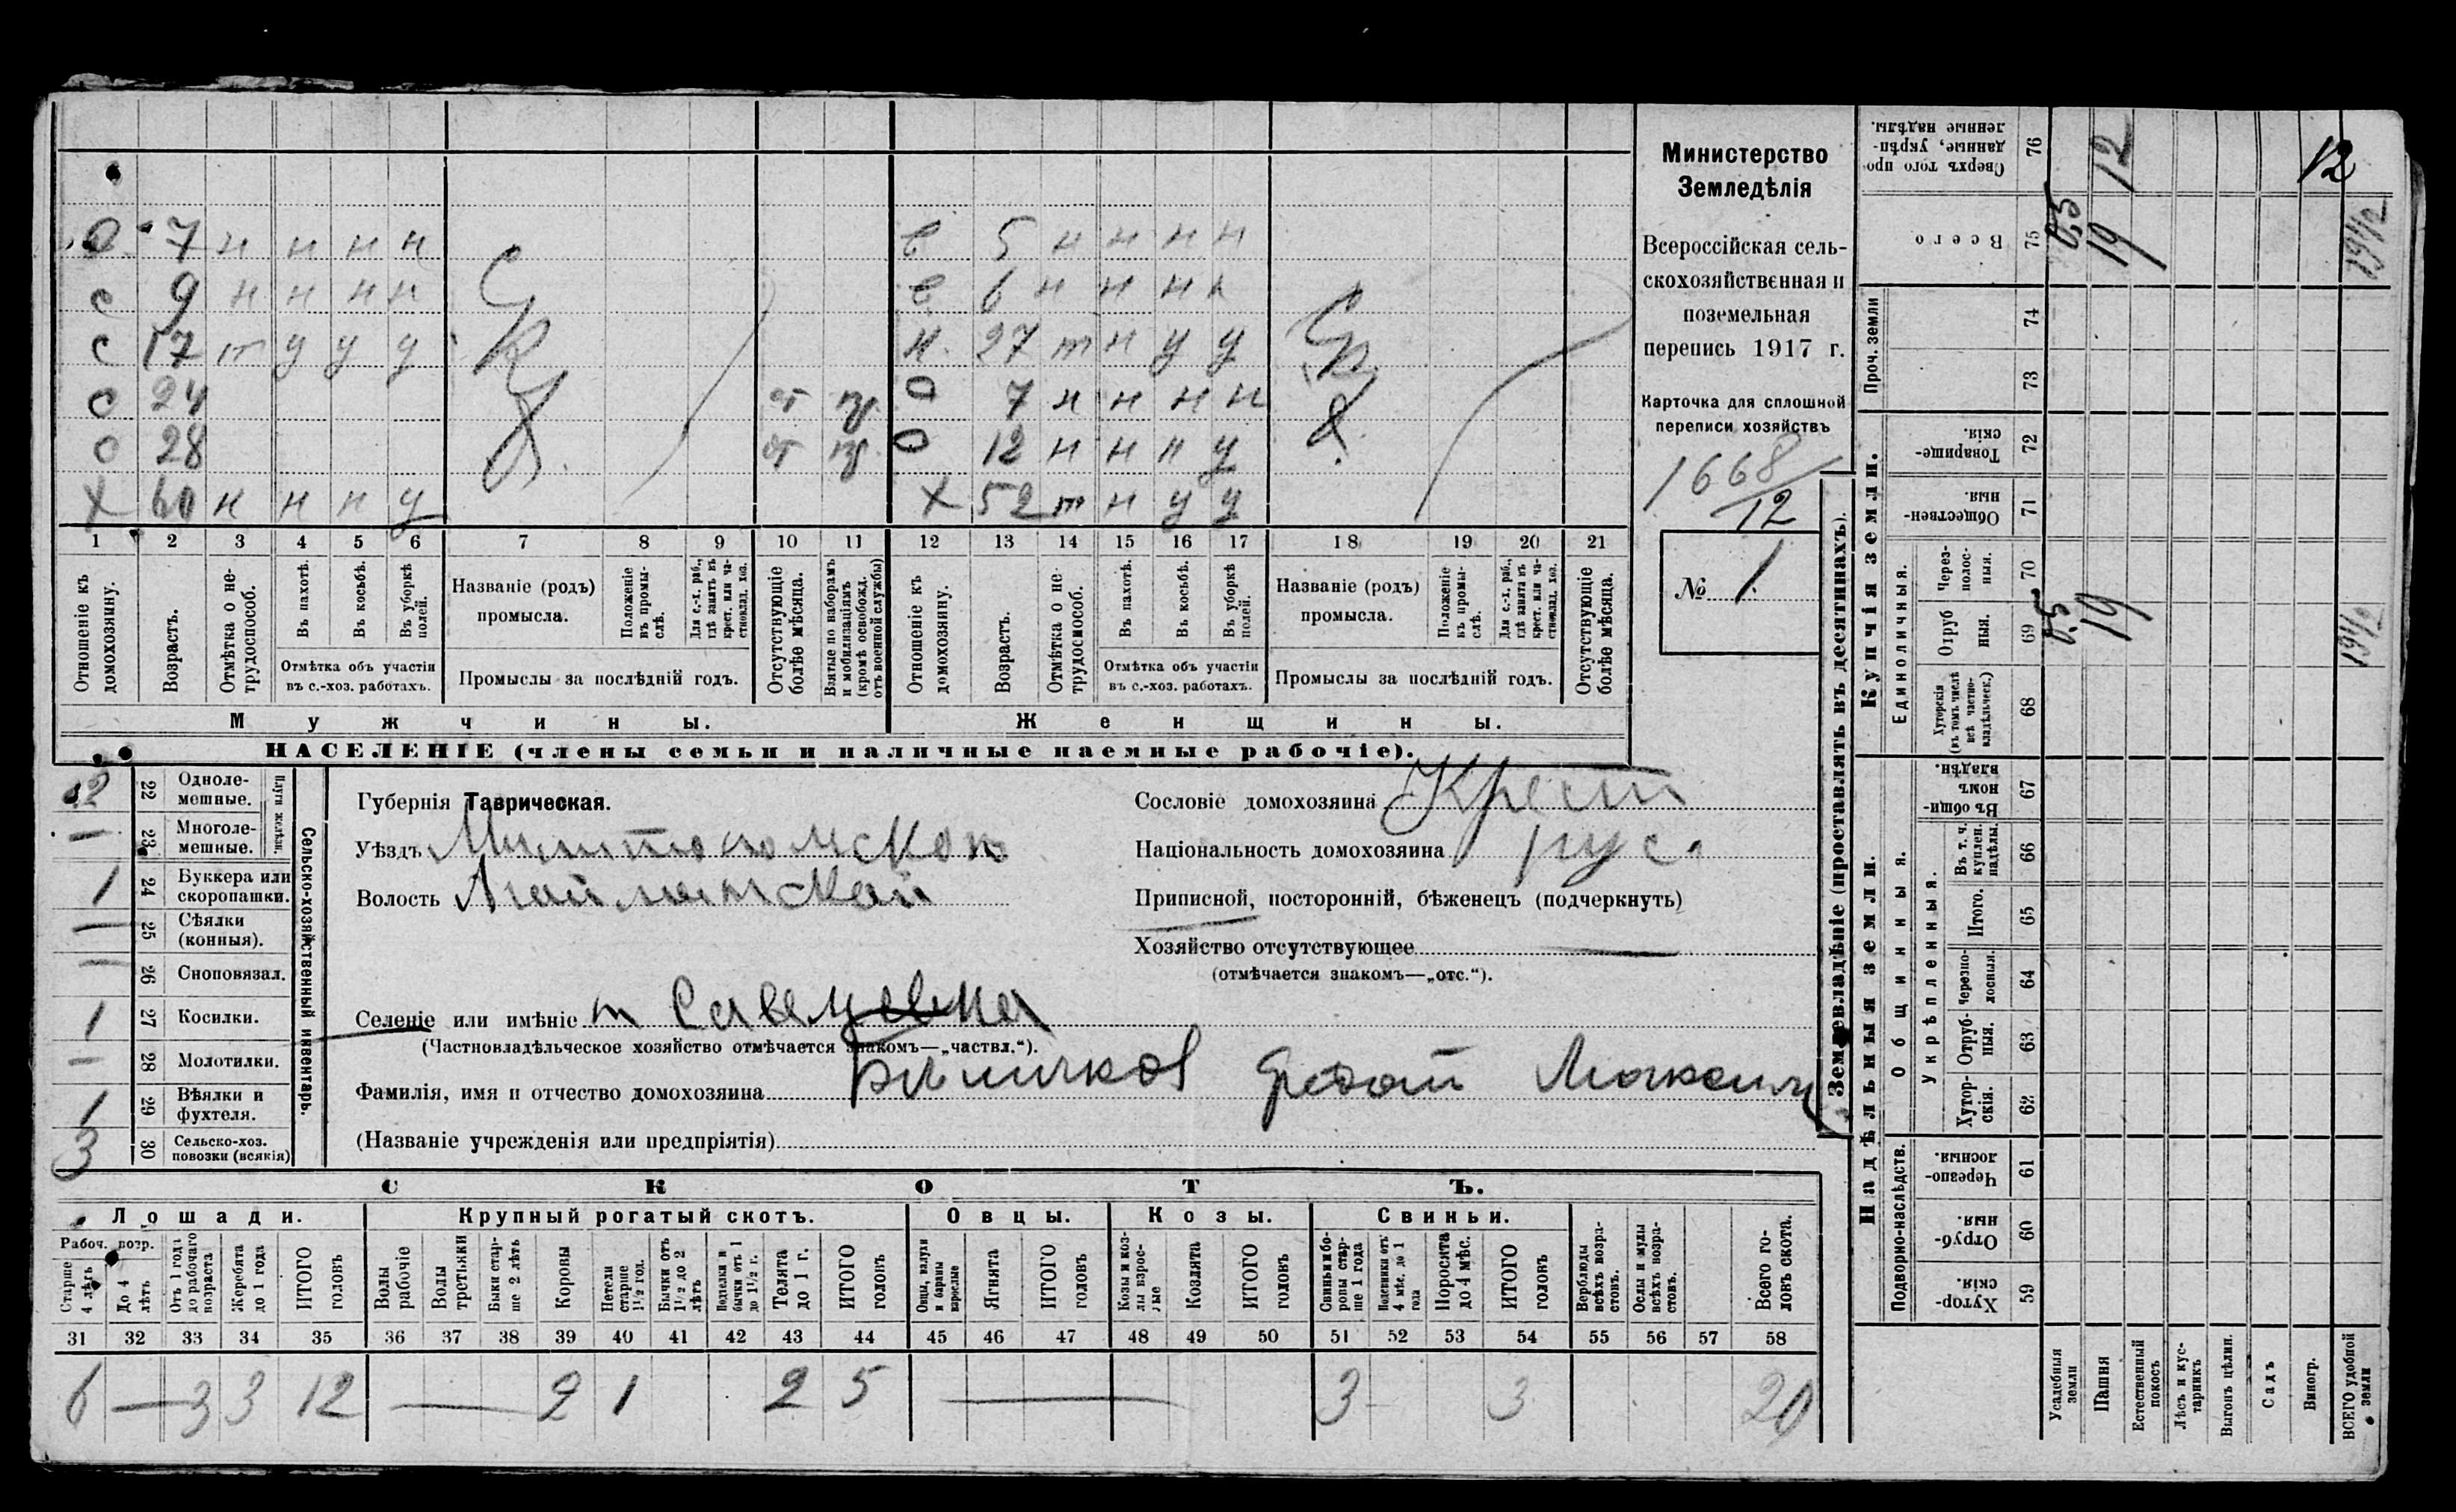 О 7 н н н н
в 5 н н н н
с 9 н н н н
в 6 н н н н
с 17 т у у у
н 27 т н у у
о 24 от
О 7 н н н н
о 28 от
О 12 н н н у
Х 60 н н н у
Х 52 т н у у
С К Д
С К Д
1 2 3 4 5 6 7 8 9 10 11 12 13 14 15 16 17 18 19 20 21
Отношеніе къ домохозяину.
Возрастъ.
Отмѣтка о не-трудоспособ.
Въ пахотѣ.
Въ косьбѣ.
Въ уборкѣ полей.
Отмѣтка объ участіи
въ с.-хоз. работахъ.
Названіе (родъ)
промысла.
Положеніе въ промы-слѣ.
Для с.-х. раб., гдѣ занятъ въ крест. или ча-стновлад. хоз.
Промыслы за послѣдній годъ.
Отсутствующіе болѣе мѣсяца.
Взятые по наборамъ и мобилизаціямъ (кромѣ освобожд. отъ военной службы)
Отношеніе къ домохозяину.
Возрастъ.
Отмѣтка о не-трудоспособ.
Въ пахотѣ.
Въ косьбѣ.
Въ уборкѣ полей.
Отмѣтка объ участіи
въ с.-хоз. работахъ.
Названіе (родъ)
промысла.
Положеніе въ промы-слѣ.
Для с.-х. раб., гдѣ занятъ въ крест. или ча-стновлад. хоз.
Промыслы за послѣдній годъ.
Отсутствующіе болѣе мѣсяца.
Мужчины.
Женщины.
НАСЕЛЕНІЕ (члены семьи и наличные наемные рабочіе).
Министерство
Земледѣлія
Всероссійская сель-
скохозяйственная и
поземельная
перепись 1917 г.
Карточка для сплошной
переписи хозяйствъ
1668/12
№ 1.
2 22 Одноле-мешные.
— 23 Многоле-мешные.
Плуги желѣзн.
1 24 Буккера или скоропашки.
— 25 Сѣялки (конныя).
— 26 Сноповязал.
1 27 Косилки.
— 28 Молотилки.
1 29 Вѣялки и фухтеля.
3 30 Сельско-хоз. повозки (всякія)
Сельско-хозяйственный инвентарь.
Губернія Таврическая.
Уѣздъ
Волость
Сословіе домохозяина Крест
Національность домохозяина рус.
Приписной, посторонній, бѣженецъ (подчеркнуть)
Хозяйство отсутствующее —
(отмѣчается знакомъ—„отс.“).
Селеніе или имѣніе
(Частновладѣльческое хозяйство отмѣчается знакомъ—„частвл.“).
Фамилія, имя и отчество домохозяина
(Названіе учрежденія или предпріятія)
СКОТЪ.
Лошади.
Рабоч. возр.
Старше 4 лѣтъ
До 4 лѣтъ
Отъ 1 года до рабочаго возраста
Жеребята до 1 года
ИТОГО головъ
Крупный рогатый скотъ.
Волы рабочіе
Волы третьяки
Быки стар-ше 2 лѣтъ
Коровы
Нетели старше 1½ год.
Бычки отъ 1½ до 2 лѣтъ
Подтелки и бычки отъ 1 до 1½ г.
Телята до 1 г.
ИТОГО головъ
Овцы.
Овцы, валухи и бараны взрослые
Ягнята
ИТОГО головъ
Козы.
Козы и коз-лы взрос-лые
Козлята
ИТОГО головъ
Свиньи.
Свиньи и бо-ровы стар-ше 1 года
Подсвинки отъ 4 мѣс. до 1 года
Поросята до 4 мѣс.
ИТОГО головъ
Верблюды всѣхъ возра-стовъ.
Ослы и мулы всѣхъ возра-стовъ.
Всего го-ловъ скота.
31 32 33 34 35 36 37 38 39 40 41 42 43 44 45 46 47 48 49 50 51 52 53 54 55 56 57 58
6 — 3 3 12 — 2 1 2 5 — 3 3 20
Землевладѣніе (проставлять въ десятинахъ).
Купчія земли.
Надѣльныя земли.
Сверхъ того про-данные, укрѣп-ленные надѣлы. 76
Всего 75
Проч. земли 74 73
Товарище-скія. 72
Обществен-ныя. 71
Единоличныя.
Через-полос-ныя. 70
Отруб ныя. 69
Хуторскія (въ томъ числѣ всѣ частно-владѣльческ.) 68
Въ общи-номъ владѣн. 67
Общинныя.
Укрѣпленныя.
Въ т. ч. куплен. надѣлы. 66
Итого. 65
Черезпо-лосныя. 64
Отруб-ныя. 63
Хутор-скія. 62
Подворно-наслѣдств.
Черезпо-лосныя. 61
Отруб-ныя. 60
Хутор-скія. 59
Усадебныя земли
Пашня
Естественный покосъ
Лѣсъ и кус-тарникъ
Выгонъ цѣлин.
Садъ
Виногр.
ВСЕГО удобной земли
12 12
0,5 19 19½
0,5 19 19½